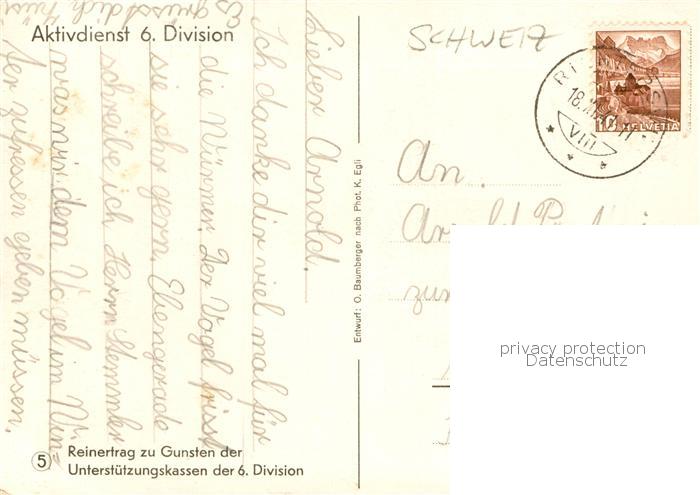 Aktivdienst 6. Division
SCHWEIZ
HELVETIA
10
18.
VIII
Lieber Arnold.
Ich danke dir viel mal für
die Würmer. Der Vogel frisst
sie sehr gern. Ebengerade
schreibe ich Herrn Stemmler
was wir dem Vogel im Win=
ter zufressen geben müssen.
Es grüsst dich
An.
Entwurf: O. Baumberger nach Phot. K. Egli
5 Reinertrag zu Gunsten der
Unterstützungskassen der 6. Division
privacy protection
Datenschutz